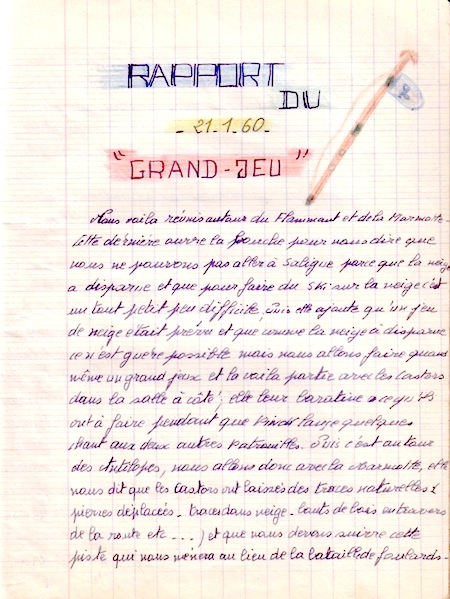 RAPPORT
DU
- 21.1.60 -
"GRAND-JEU"
Nous voila réunis autour du Flammant et de la Marmotte.
Cette dernière ouvre la bouche pour nous dire que
nous ne pouvons pas aller à Saligue parce que la neige
a disparue et que pour faire du ski sur la neige c'est
un tout petit peu difficile. Puis elle ajoute qu'un jeu
de neige était prévu et que comme la neige à disparue
ce n'est guère possible mais nous allons faire quand
même un grand jeux et la voila partie avec les Castors
dans la salle à côté; elle leur baratine ce qu'ils
ont à faire pendant que lance quelques
chant aux deux autres Patrouilles. Puis c'est au tour
des Antilopes, nous allons donc avec la Marmotte, elle
nous dit que les Castors ont laissés des traces naturelles
pierres déplacés - traces dans neige - bouts de bois en travers
de la route etc ...) et que nous devons suivre cette
piste qui nous mènera au lieu de la bataille de foulards -